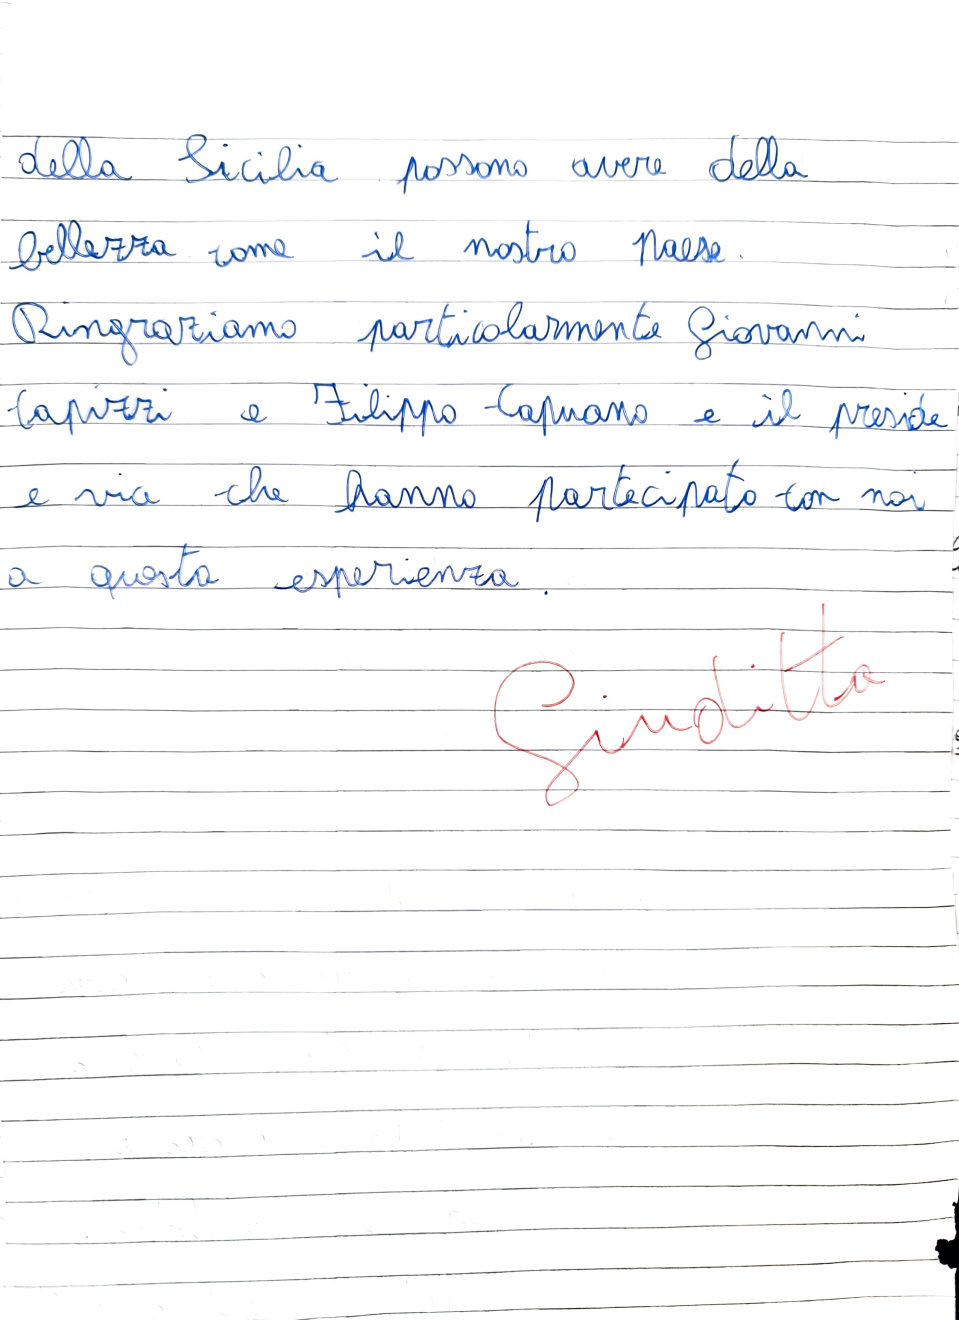 della Sicilia possono avere della
bellezza come il nostro paese.
Ringraziamo particolarmente Giovanni
Capizzi e Filippo Capuano e il preside
e vice che hanno partecipato con noi
a questa esperienza.
Giuditta